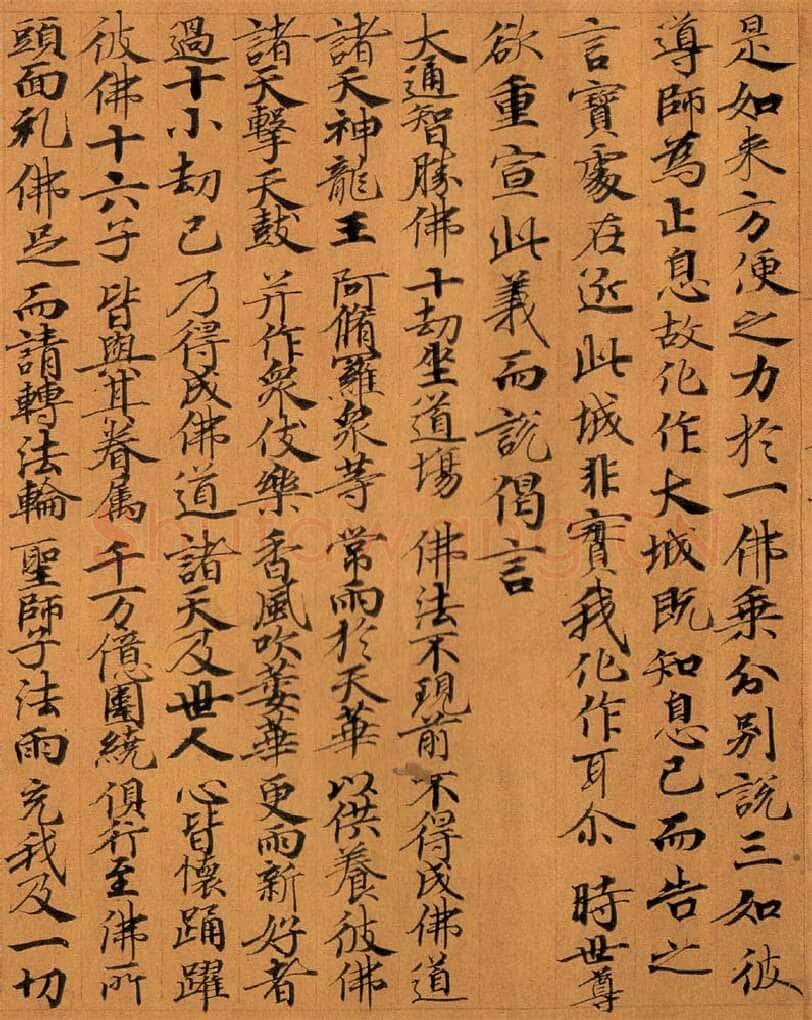 是如来方便之力於一佛乗分别說三如彼
導師為止息故化作大城既知息已而告之
言寶處在近此城非寶我化作耳尒時世尊
欲重宣此義而說偈言
大通智勝佛 十劫坐道場 佛法不現前 不得成佛道
諸天神龍王 阿脩羅衆等 常雨於天華 以供養彼佛
諸天擊天鼓 并作衆伎樂 香風吹萎華 更雨新好者
過十小劫已 乃得成佛道 諸天及世人 心皆懷踊躍
彼佛十六子 皆與其眷属 千万億圍繞 俱行至佛所
頭面礼佛足 而請轉法輪 聖師子法雨 充我及一切